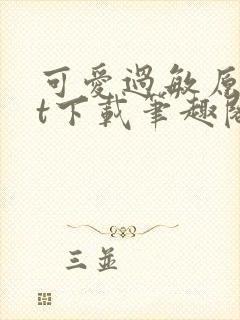 可愛過敏原
t下載筆趣閣
三並